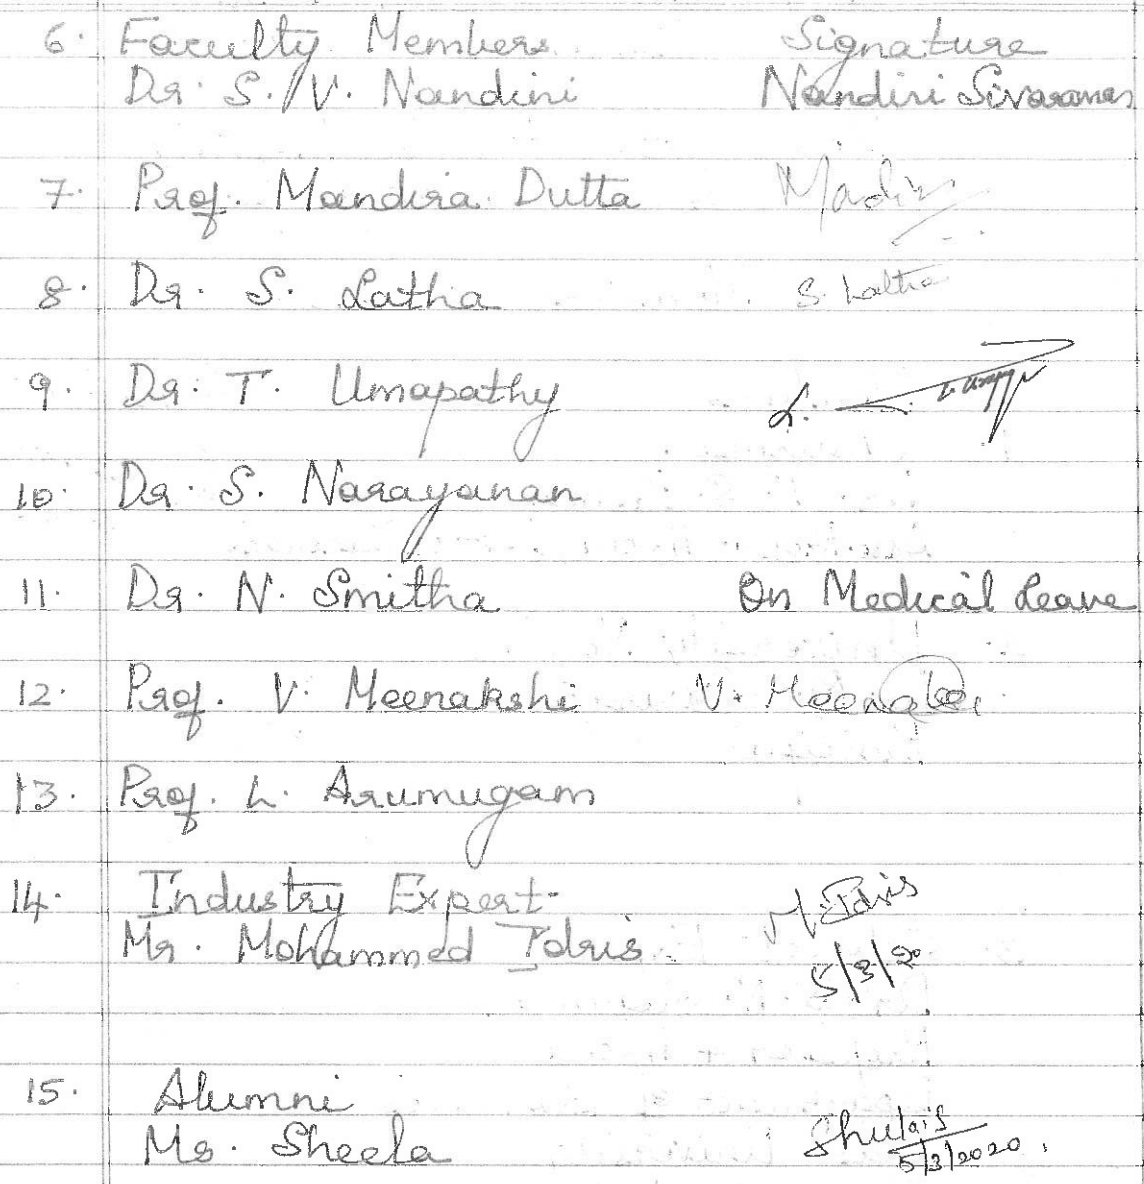 6. Faculty Members Signature
Dr. S. V. Nandini Nandini Sivaraman
7. Prof. Mandira Dutta
8. Dr. S. Latha S. Latha
9. Dr. T. Umapathy
10. Dr. S. Narayanan
11. Dr. N. Smitha On Medical Leave
12. Prof. V. Meenakshi V. Meenakshi
13. Prof. L. Arumugam
14. Industry Expert-
Mr. Mohammed Idris M. Idris
5/3/20
15. Alumni
Ms. Sheela
5/3/2020.